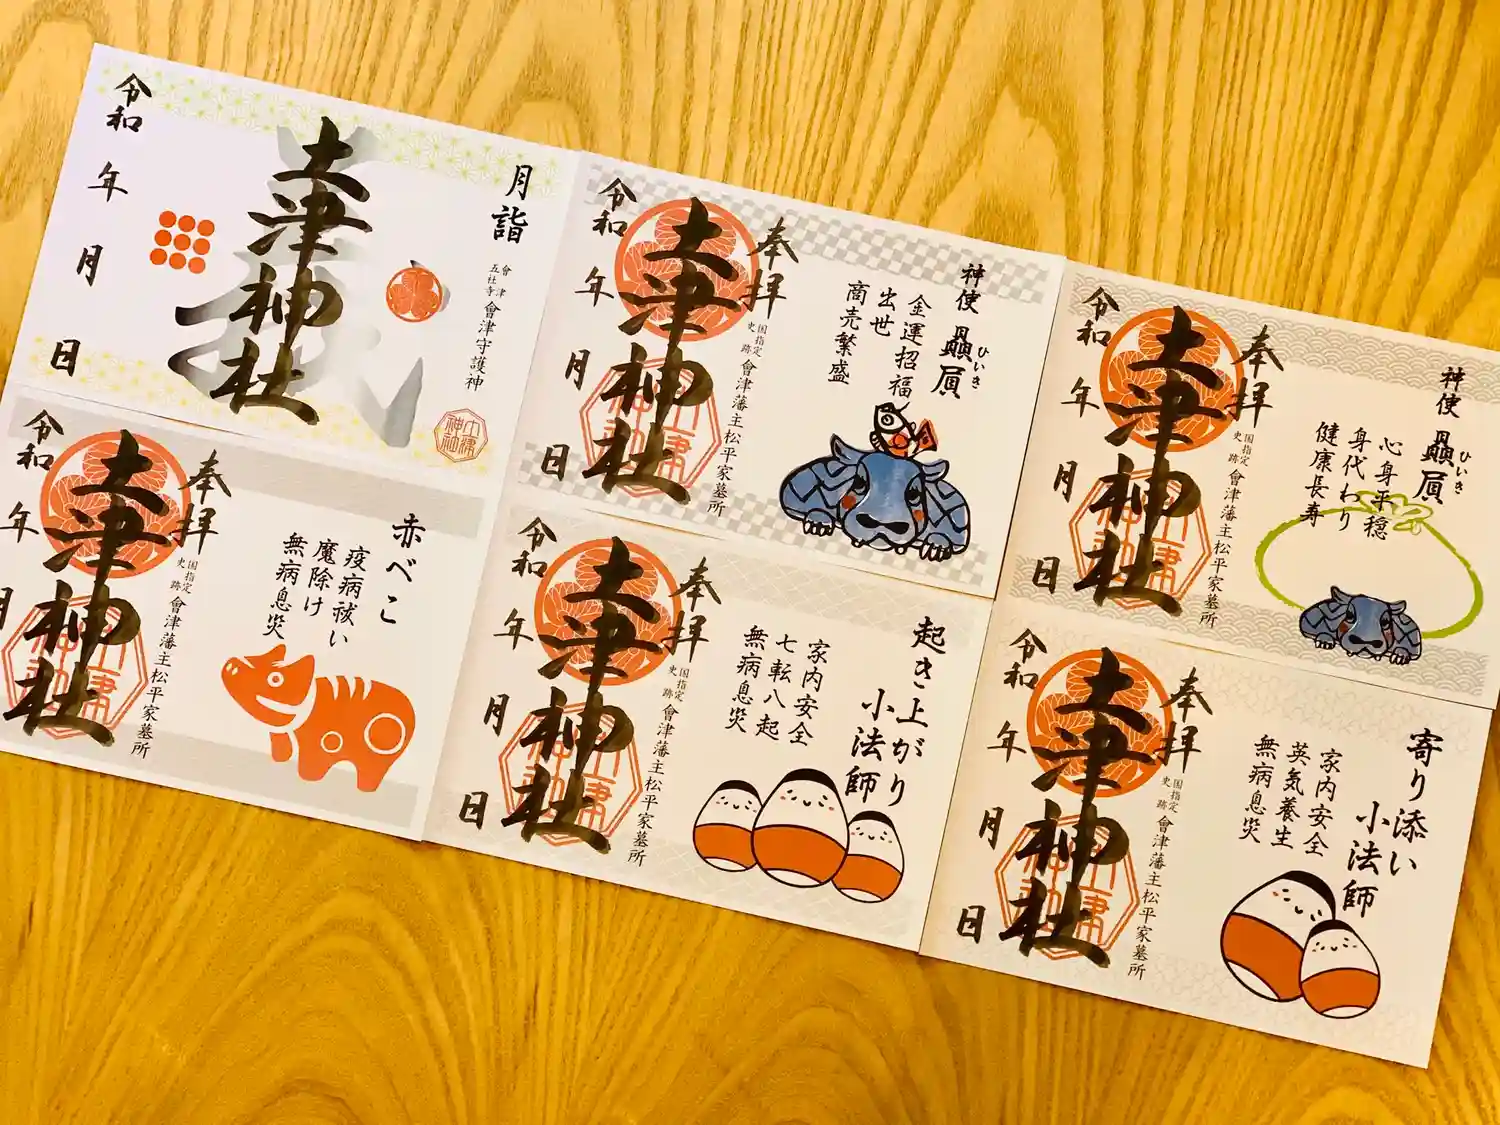 月詣
會津
五社寺
會津守護神
土津神社
令和
年
月
日
奉拝
神使
贔屓
ひいき
金運招福
出世
商売繁盛
国指定
史跡
會津藩主松平家墓所
土津神社
令和
年
月
日
奉拝
神使
贔屓
ひいき
心身平穏
身代わり
健康長寿
国指定
史跡
會津藩主松平家墓所
土津神社
令和
年
月
日
奉拝
赤べこ
疫病祓い
魔除け
無病息災
国指定
史跡
會津藩主松平家墓所
土津神社
令和
年
月
奉拝
起き上がり
小法師
家内安全
七転八起
無病息災
国指定
史跡
會津藩主松平家墓所
土津神社
令和
年
月
日
奉拝
寄り添い
小法師
家内安全
英気養生
無病息災
国指定
史跡
會津藩主松平家墓所
土津神社
令和
年
月
日